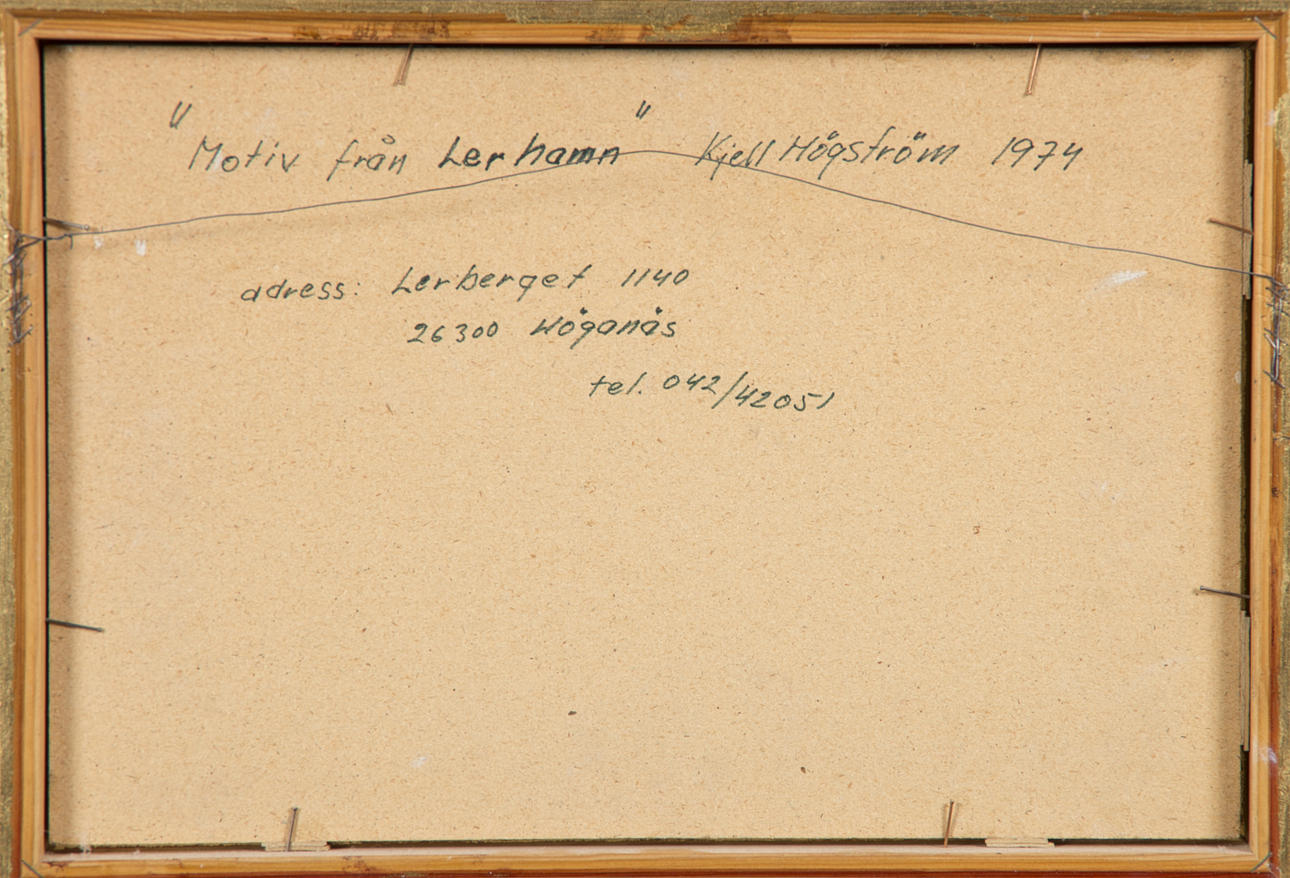 "Motiv från Lerhamn" Kjell Högström 1974
adress: Lerberget 1140
26300 Höganäs
tel. 042/42051